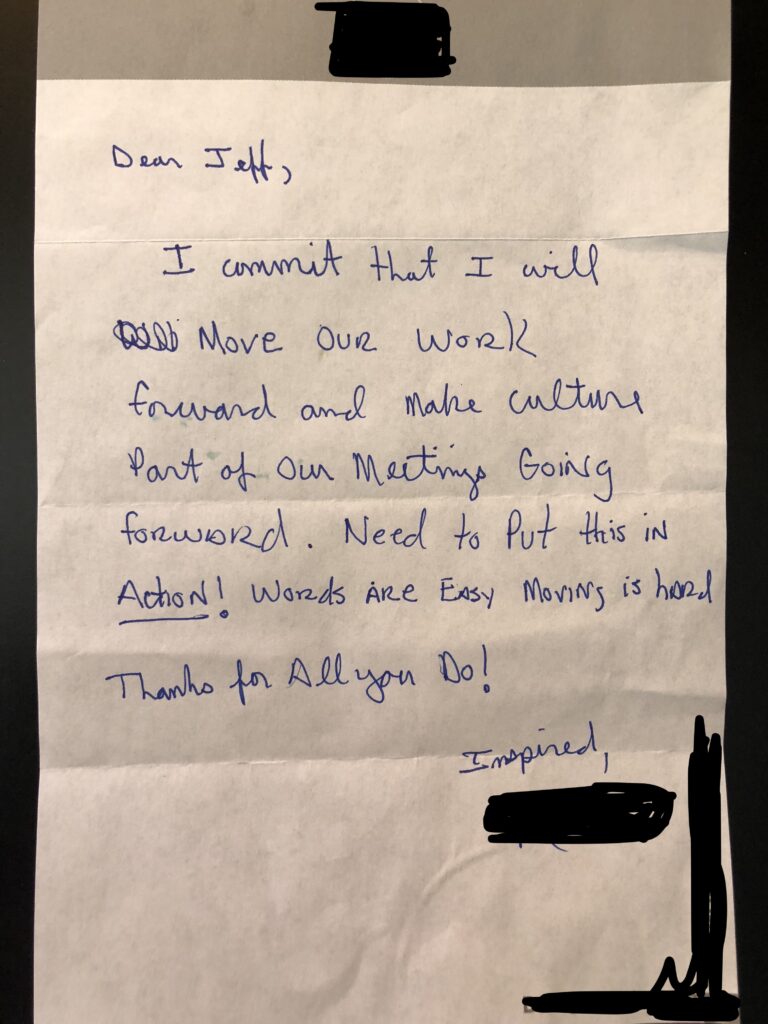 Dear Jeff,
I commit that I will
Move our work
forward and make culture
Part of our Meetings Going
forward. Need to Put this in
Action! Words are Easy Moving is hard
Thanks for All you Do!
Inspired,